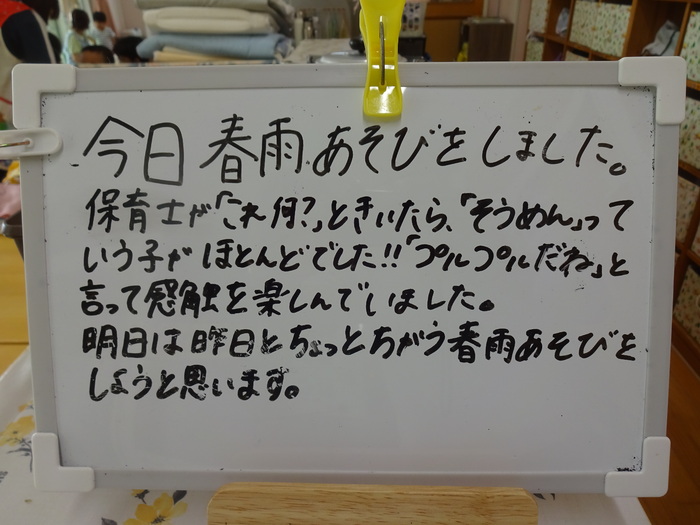 今日 春雨あそびをしました。
保育士が「これ何?」ときいたら、「そうめん」って
いう子がほとんどでした!!「プルプルだね」と
言って感触を楽しんでいました。
明日は昨日とちょっとちがう春雨あそびを
しようと思います。